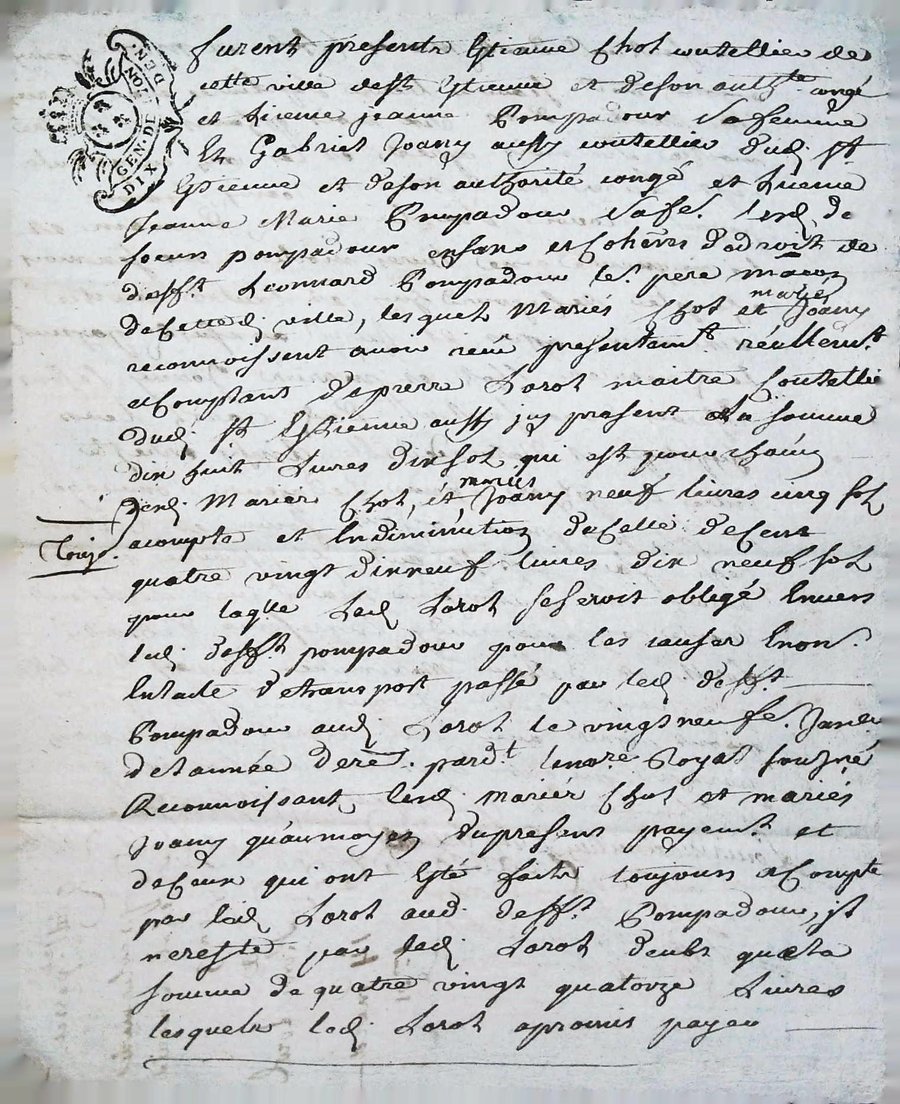 GEN. DE LION
DIX DEN.
furent presents Estienne Chol coutellier de
cette ville de st Estienne et de son authte congé
et licence jeanne Pompadour sa femme
Et Gabriel Joany aussy coutellier dud. st
Estienne et de son authorité congé et licence
Jeanne Marie Pompadour sa fe. lesd. de
soeurs pompadour enfans et Cohers. de droit de
defft. Leonnard Pompadour le. pere maçon
de Cette d. ville, lesquels Mariés Chol et mariés Joany
reconnoissent avoir reçu presentemt. réellemt.
et Comptant de pierre Larol maitre Coutellie
dud. st Estienne aussy icy present la somme
dix huit Livres dix sol qui est pour chacun
desd. Mariés Chol, et mariés Joany neuf livres cinq sol
acompte et En diminution de Celle de Cent
quatre vingt dix neuf livres dix neuf sol
pour laqlle Led. Larol se seroit obligé Envers
led. defft. pompadour pour les causes Enon.
En l'acte de transport passé par led. defft.
Pompadour aud. Larol le vingt neufe. Janer
de l'année dere. pardt. le nore Royal sousné
Reconnoissant lesd. mariés Chol et mariés
Joany qu'au moyen du present payemt. et
de Ceux qui ont Esté faits toujours a Compte
par led. Larol aud. defft. Pompadour, il
ne reste par led. Larol deubt que la
somme de quatre vingt quatorze Livres
lesquels led. Larol a promis payer